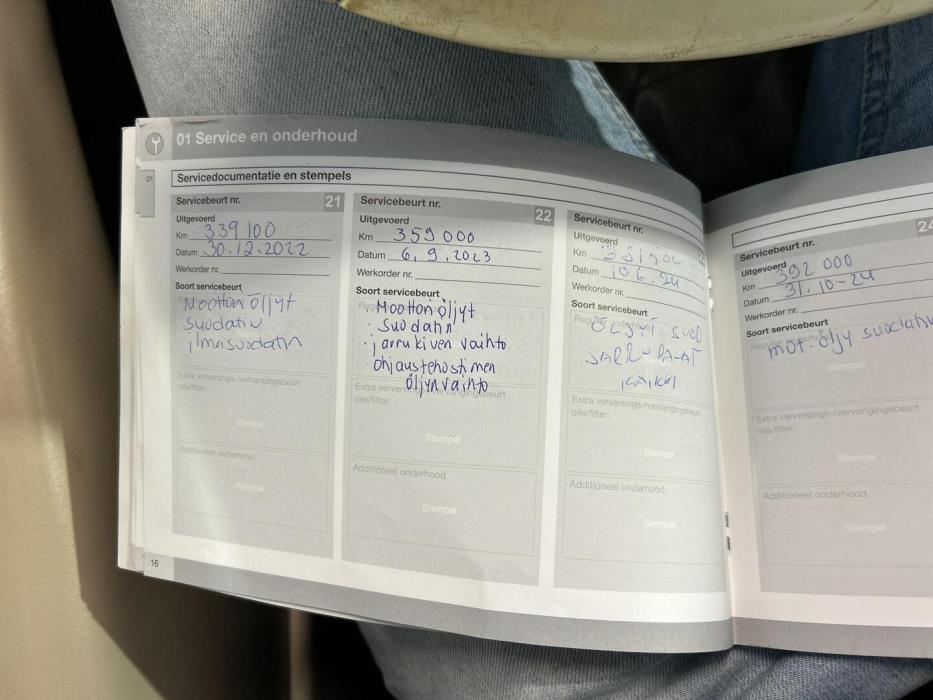 01 Service en onderhoud
01
Servicedocumentatie en stempels
Servicebeurt nr. 21
Uitgevoerd
Km 339 100
Datum 30.12.2022
Werkorder nr.
Soort servicebeurt
Moottoriöljyt
suodatin
ilmasuodatin
Extra verversings-/vervangingsbeurt
olie/filter:
Stempel
Additioneel onderhoud
Stempel
16
Servicebeurt nr. 22
Uitgevoerd
Km 359 000
Datum 6.9.2023
Werkorder nr.
Soort servicebeurt
Moottoriöljyt
suodatin
jarrukiven vaihto
ohjaustehostimen
öljyn vaihto
Extra verversings-/vervangingsbeurt
olie/filter:
Stempel
Additioneel onderhoud
Stempel
Servicebeurt nr.
Uitgevoerd
Km
Datum 10.6.24
Werkorder nr.
Soort servicebeurt
ÖLJYT SUOD
JARRUPALAT
KAIKKI
Extra verversings-/vervangingsbeurt
olie/filter:
Stempel
Additioneel onderhoud
Stempel
Servicebeurt nr. 24
Uitgevoerd
Km 392 000
Datum 31.10-24
Werkorder nr.
Soort servicebeurt
mot.öljy suodatin
Stempel
Extra verversings-/vervangingsbeurt
olie/filter:
Stempel
Additioneel onderhoud
Stempel